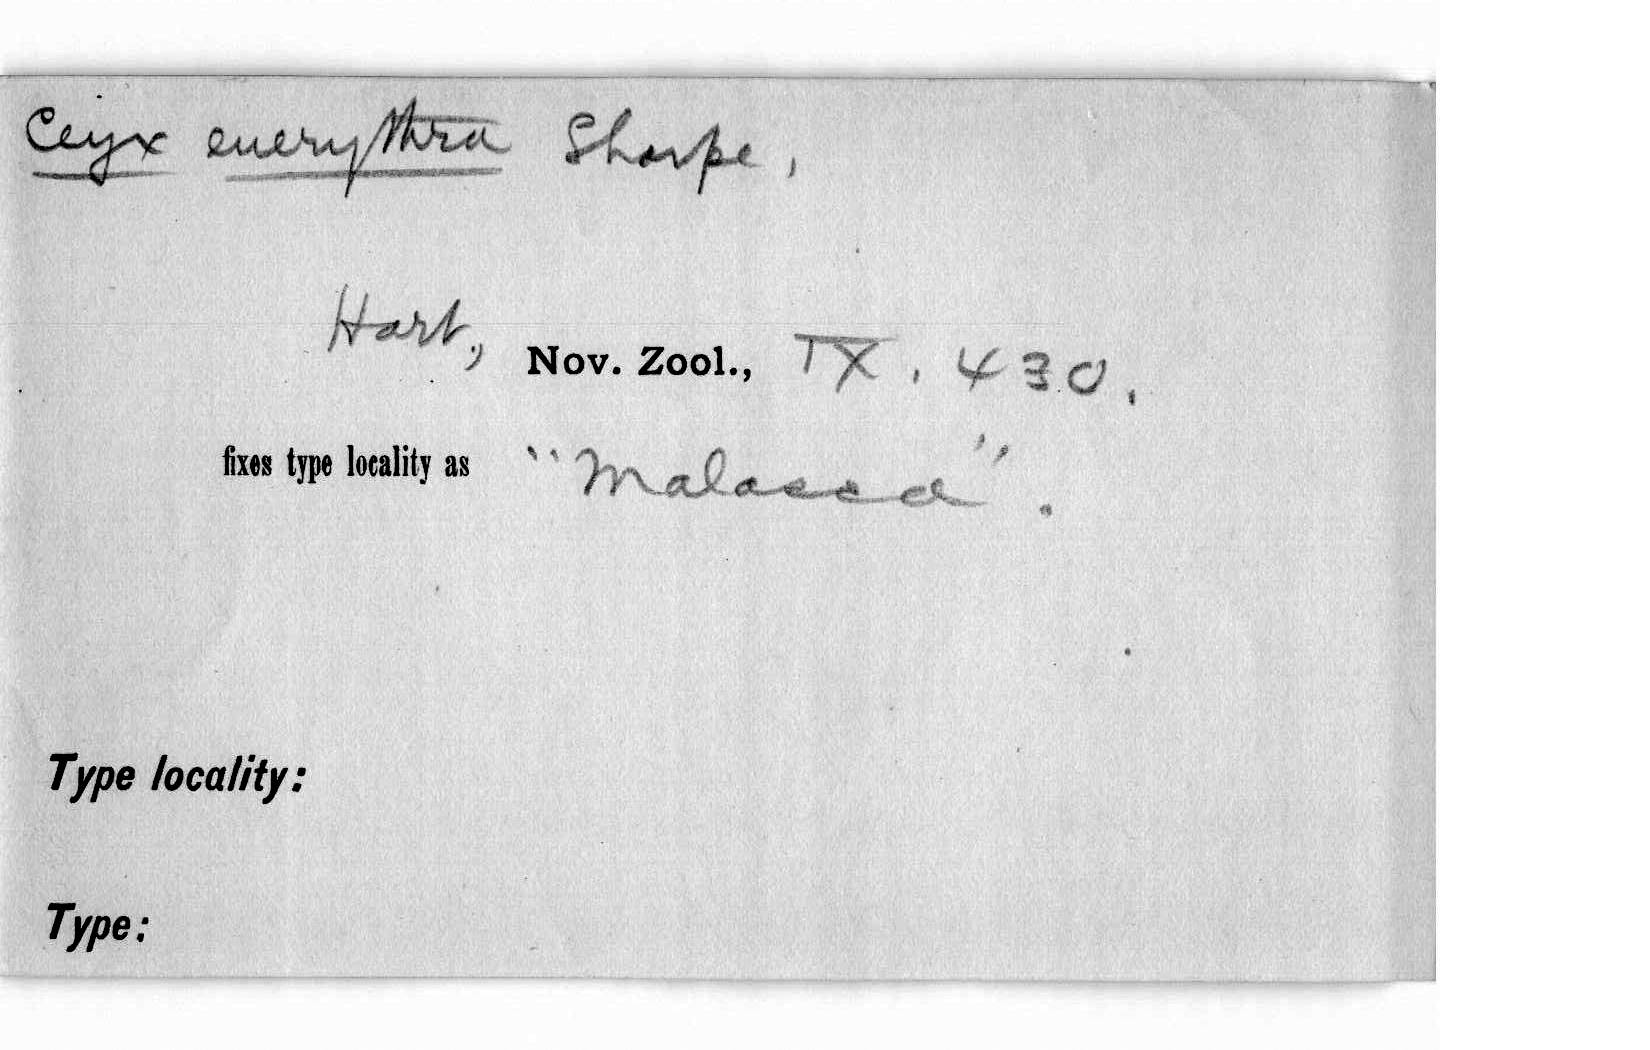 Ceyx euerythra Sharpe,
Hart., Nov. Zool., IX, 430.
fixes type locality as "Malacca".
Type locality:
Type: